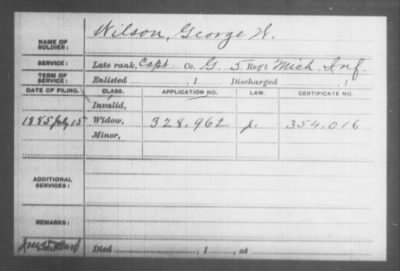 NAME OF SOLDIER: Wilson, George W.
SERVICE: Late rank, Capt. Co. G. 5 Reg't Mich. Inf.
TERM OF SERVICE: Enlisted , 1 Discharged , 1
DATE OF FILING. CLASS. APPLICATION NO. LAW. CERTIFICATE NO.
Invalid,
1885 July 15 Widow, 328.962 354.016
Minor,
ADDITIONAL SERVICES:
REMARKS:
Died , 1 , at